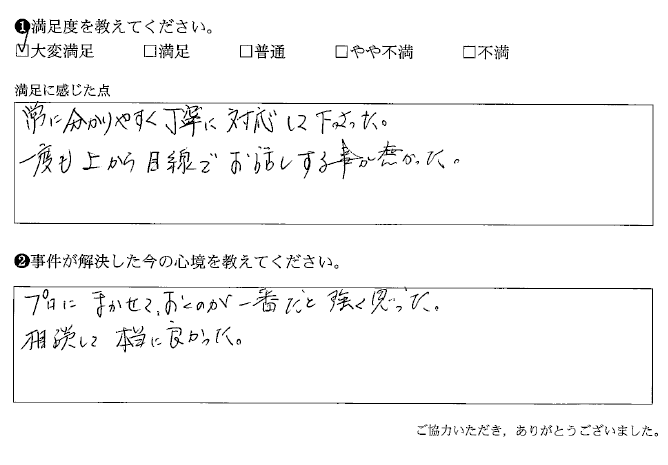 ❶満足度を教えてください。
☑大変満足 □満足 □普通 □やや不満 □不満
満足に感じた点
常に分かりやすく丁寧に対応して下さった。
一度も上から目線でお話しする事が無かった。
❷事件が解決した今の心境を教えてください。
プロにまかせて、おくのが一番だと強く思った。
相談して本当に良かった。
ご協力いただき，ありがとうございました。